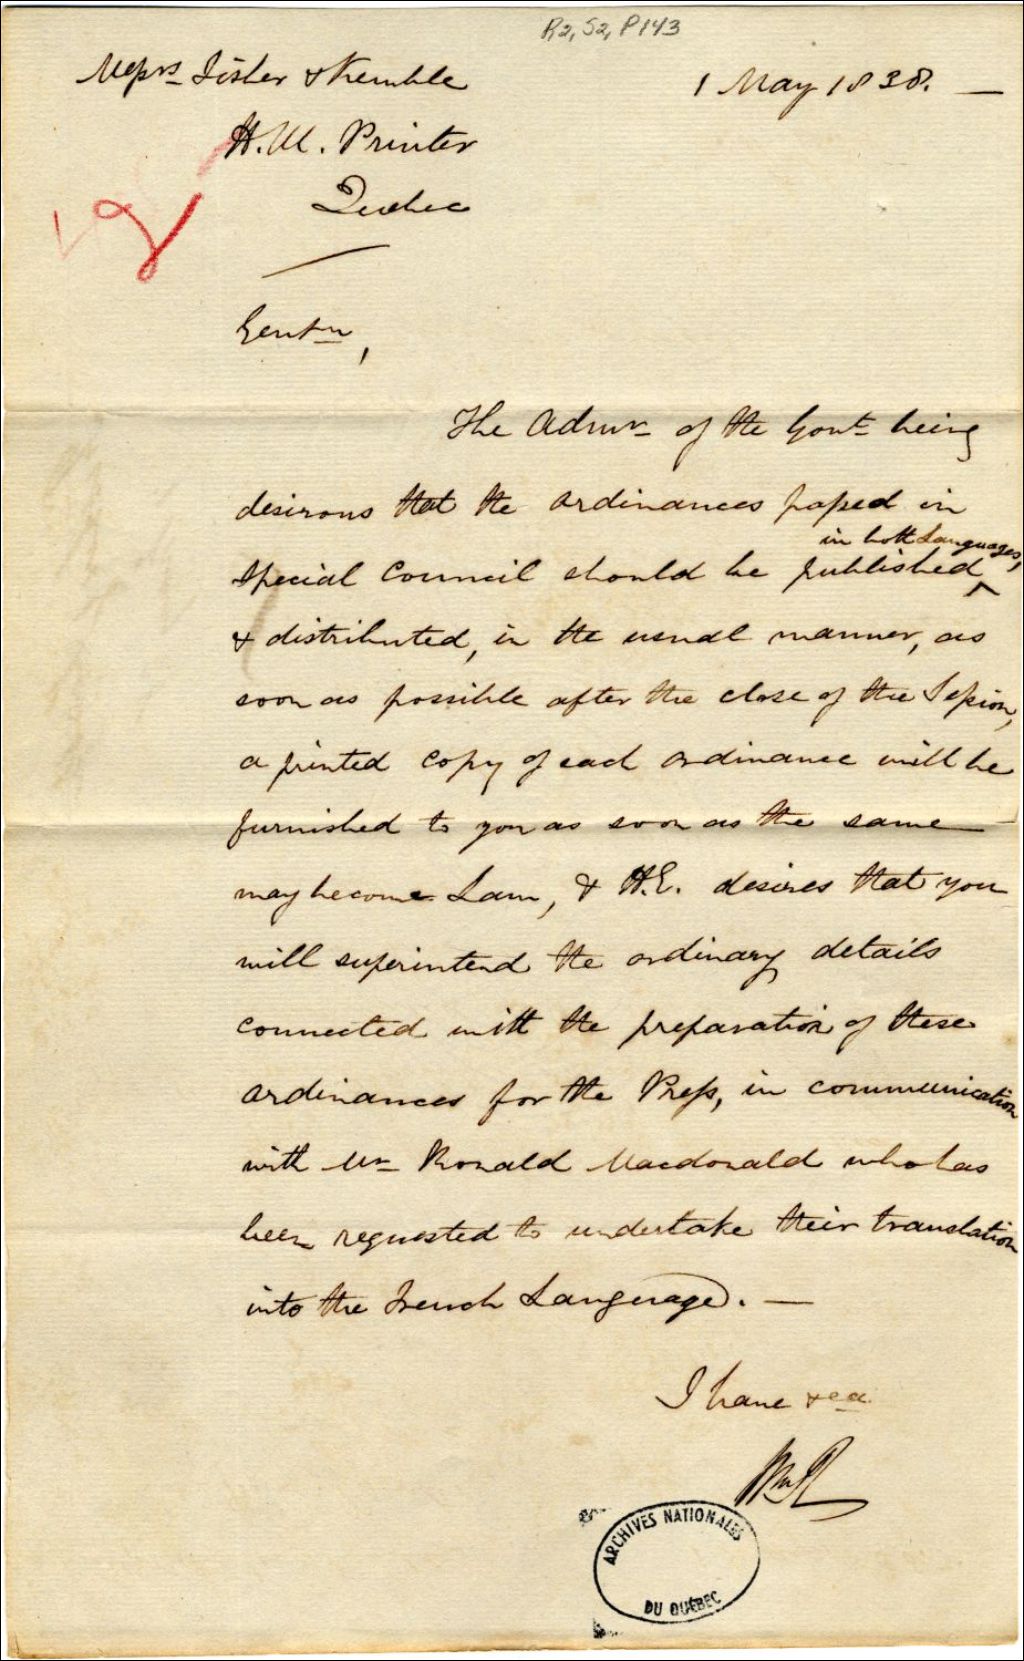 R2, S2, P143
Messrs Fisher & Kemble
1 May 1838. —
H.M. Printer
Quebec
Gentn,
The Admr of the Govt being
desirous that the Ordinances passed in
in both Languages,
Special Council should be published ^
& distributed, in the usual manner, as
soon as possible after the close of the Session,
a printed copy of each ordinance will be
furnished to you as soon as the same
may become Law, & H.E. desires that you
will superintend the ordinary details
connected with the preparation of these
Ordinances for the Press, in communication
with Mr Ronald Macdonald who has
been requested to undertake their translation
into the French Language. —
I have &ca
ARCHIVES NATIONALES
DU QUÉBEC